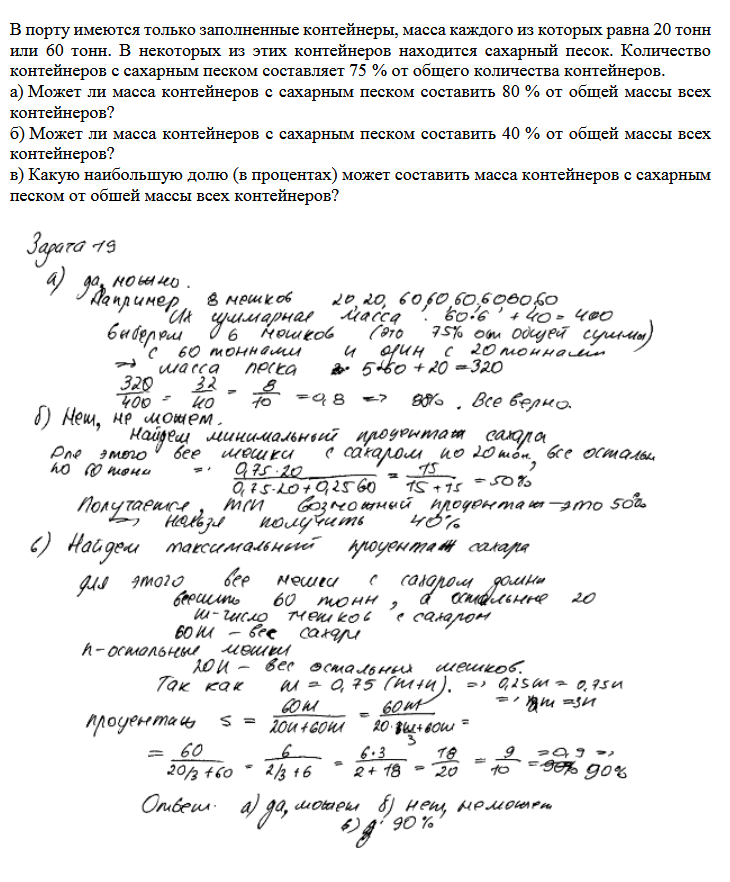 В порту имеются только заполненные контейнеры, масса каждого из которых равна 20 тонн
или 60 тонн. В некоторых из этих контейнеров находится сахарный песок. Количество
контейнеров с сахарным песком составляет 75 % от общего количества контейнеров.
а) Может ли масса контейнеров с сахарным песком составить 80 % от общей массы всех
контейнеров?
б) Может ли масса контейнеров с сахарным песком составить 40 % от общей массы всех
контейнеров?
в) Какую наибольшую долю (в процентах) может составить масса контейнеров с сахарным
песком от общей массы всех контейнеров?
Задача 19
а) да, можно.
Например 8 мешков 20, 20, 60, 60, 60, 60 60, 60
Их суммарная масса : 60·6 + 40 = 400
Выберем 6 мешков (это 75% от общей суммы)
с 60 тоннами и один с 20 тоннами
=> масса песка 5·60 + 20 = 320
320/400 = 32/40 = 8/10 = 0,8 => 80%. Все верно.
б) Нет, не может.
Найдем минимальный процентаж сахара
Для этого все мешки с сахаром по 20 тон, все остальн
по 60 тонн => 0,75·20/(0,75·20+0,25 60) = 15/(15+15) = 50%
Получается, min возможный процентаж - это 50%
=> нельзя получить 40%
в) Найдем максимальный процентаж сахара
для этого все мешки с сахаром должны
весить 60 тонн, а остальные 20
m - число мешков с сахаром
60m - вес сахара
n - остальные мешки
20n - вес остальных мешков.
Так как m = 0,75 (m+n). => 0,25m = 0,75n
=> m = 3n
процентаж S = 60m/(20n+60m) = 60m/(20·m/3+60m) =
= 60/(20/3+60) = 6/(2/3+6) = 6·3/(2+18) = 18/20 = 9/10 = 0,9 =>
= 90% 90%
Ответ: а) да, может б) нет, не может
в) 90%